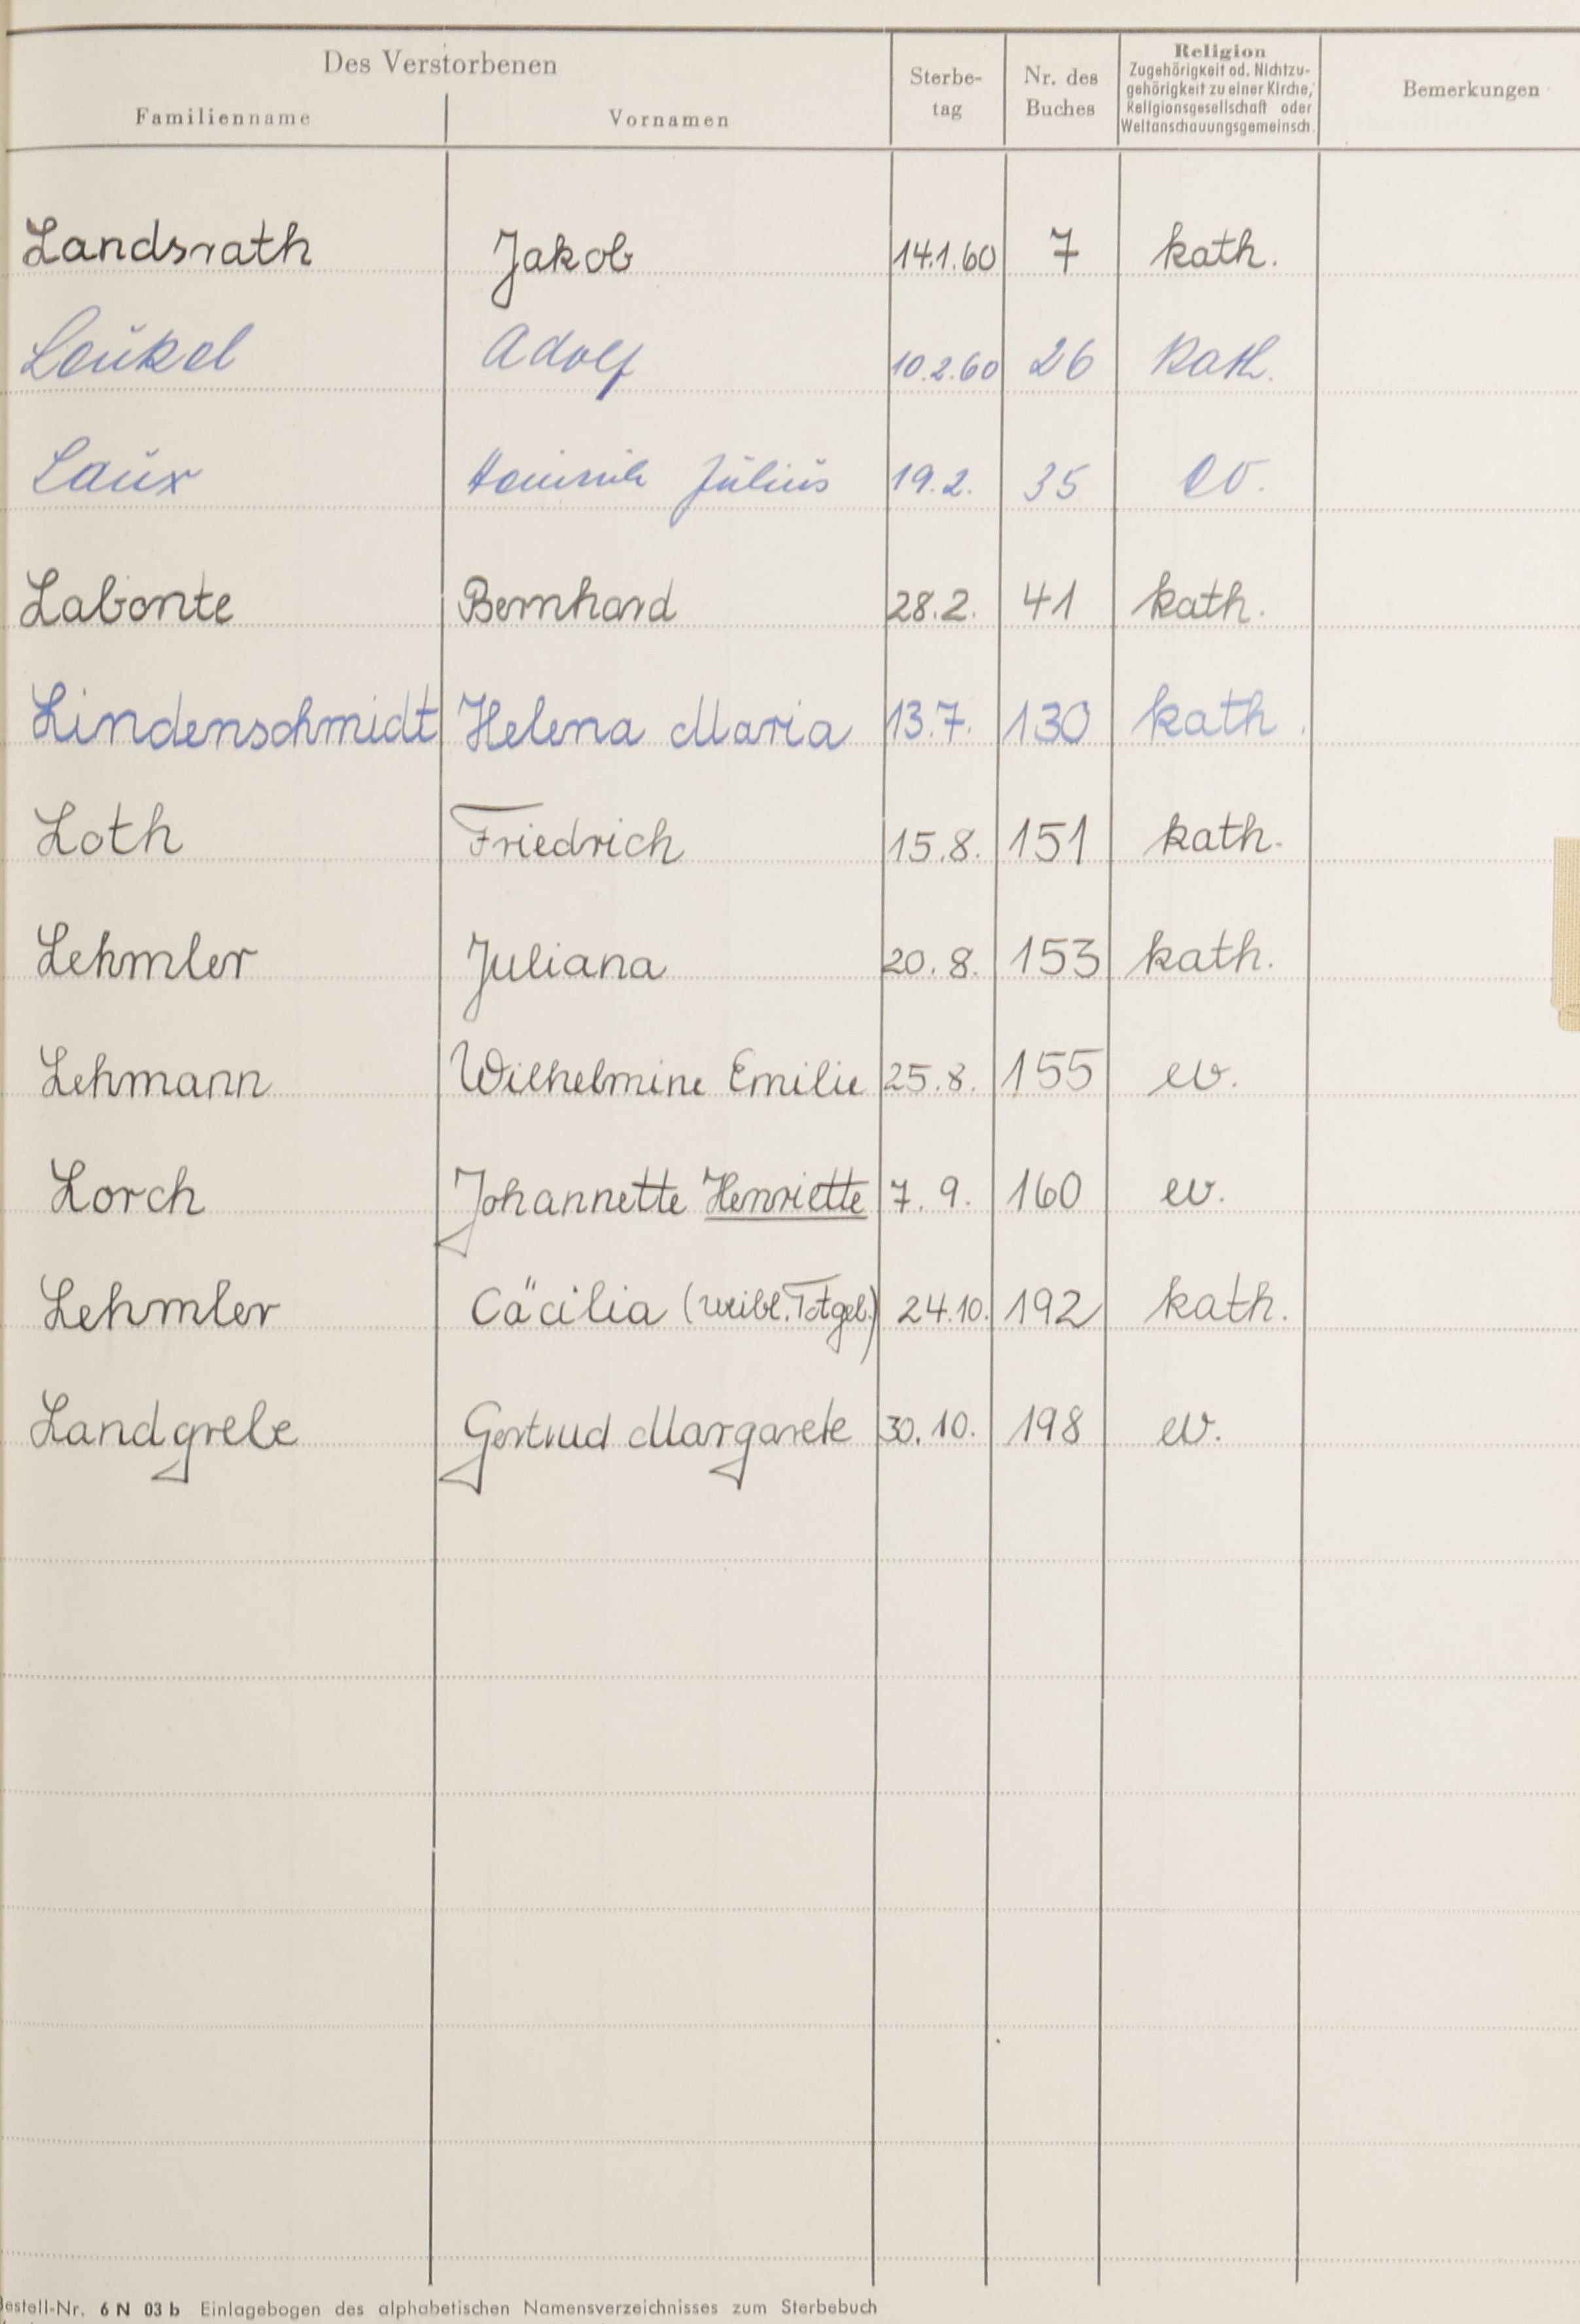 Des Verstorbenen
Familienname Vornamen Sterbe-tag Nr. des Buches Religion Zugehörigkeit od. Nichtzu-gehörigkeit zu einer Kirche, Religionsgesellschaft oder Weltanschauungsgemeinsch. Bemerkungen
Landsrath Jakob 14.1.60 7 kath.
Leükel Adolf 10.2.60 26 Kath.
Laüx Heinrich Jüliüs 19.2. 35 ev.
Labonte Bernhard 28.2. 41 kath.
Lindenschmidt Helena Maria 13.7. 130 kath.
Loth Friedrich 15.8. 151 kath.
Lehmler Juliana 20.8. 153 kath.
Lehmann Wilhelmine Emilie 25.8. 155 ev.
Lorch Johannette Henriette 7.9. 160 ev.
Lehmler Cäcilia (weibl. Totgeb.) 24.10. 192 kath.
Landgrebe Gertrud Margarete 30.10. 198 ev.
estell-Nr. 6 N 03 b Einlagebogen des alphabetischen Namensverzeichnisses zum Sterbebuch